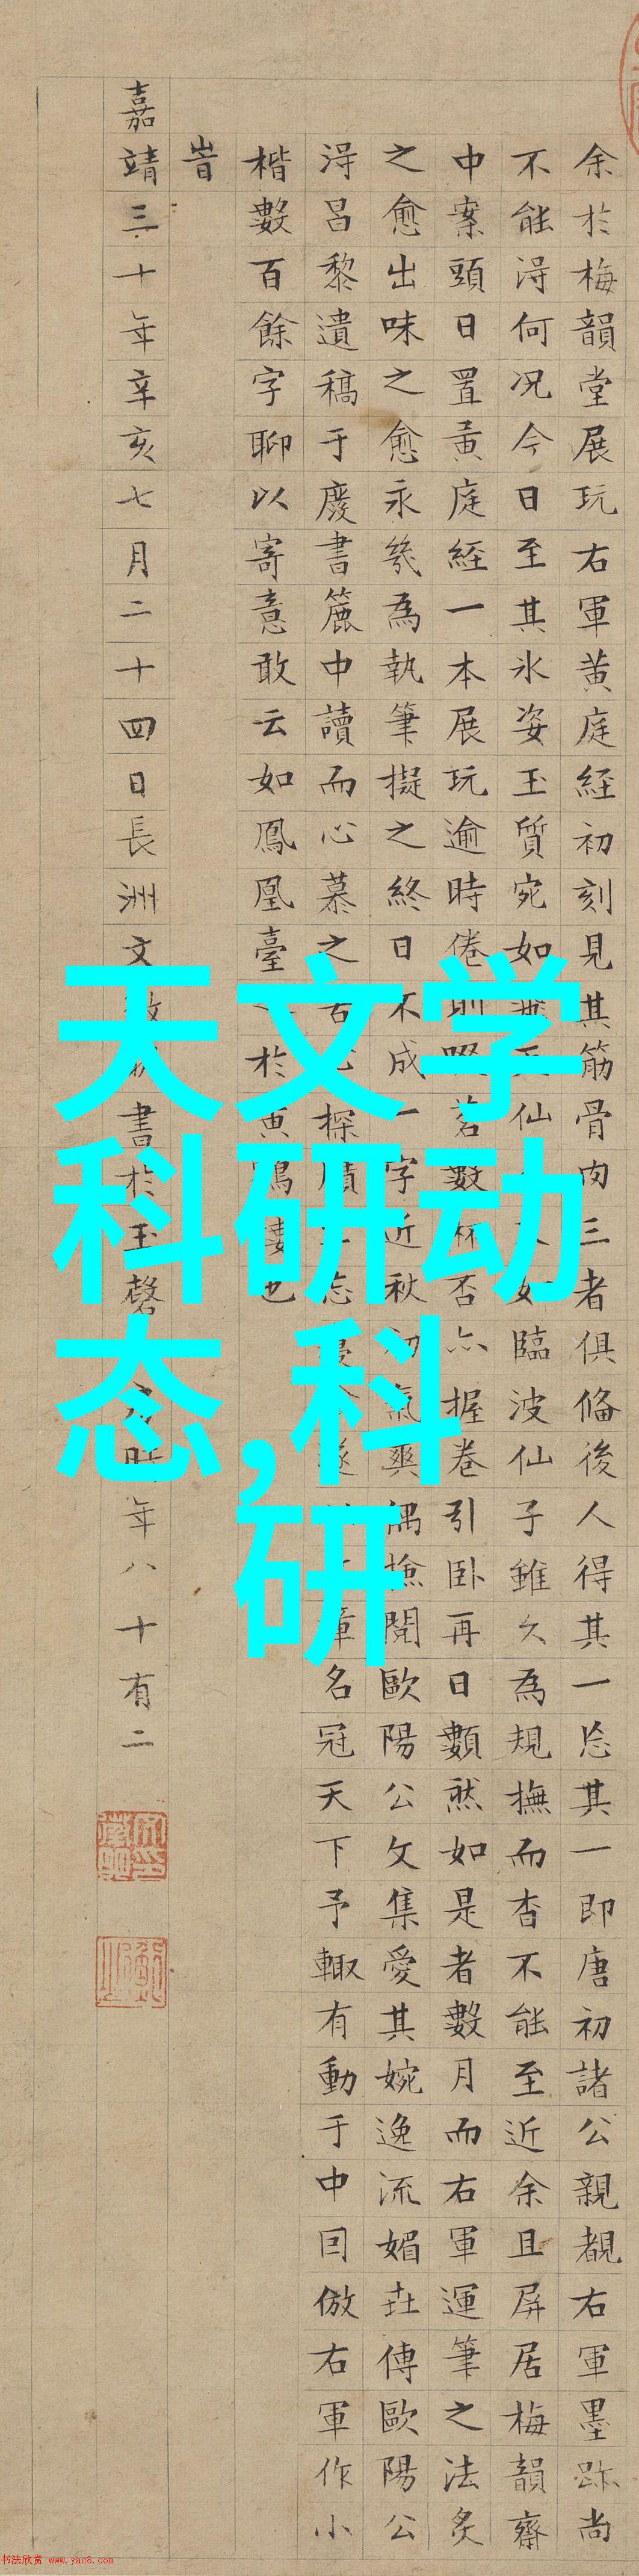 天文学
科研动
态,科
研
余於梅韻堂展玩右軍黄庭経初刻見其筋骨肉三者俱俻後人得其一忘其一即唐初諸公親覩右軍墨跡尚
不能淂何况今日至其氷姿玉質宛如仙如臨波仙子雖久為規撫而杳不能至近余且屏居梅韻齋
中案頭日置黃庭経一本展玩逾時倦則啜茗數杯否亦握卷引卧再日數然如是者數月而右軍運筆之法炙
之愈出味之愈永幾為執筆擬之終日不成一字近秋初氣爽偶撿閱歐陽公文集愛其婉逸流媚且傳歐陽公
淂呂黎遺稿于廢書簏中讀而心慕之苦探賾忘遂章名冠天下予輙有動于中囙倣右軍作小
楷數百餘字聊以寄意敢云如鳳凰臺於黃鶴樓也
旹
嘉靖三十年辛亥七月二十四日長洲文書於玉磬年八十有二
书法欣赏 www.yac8.com